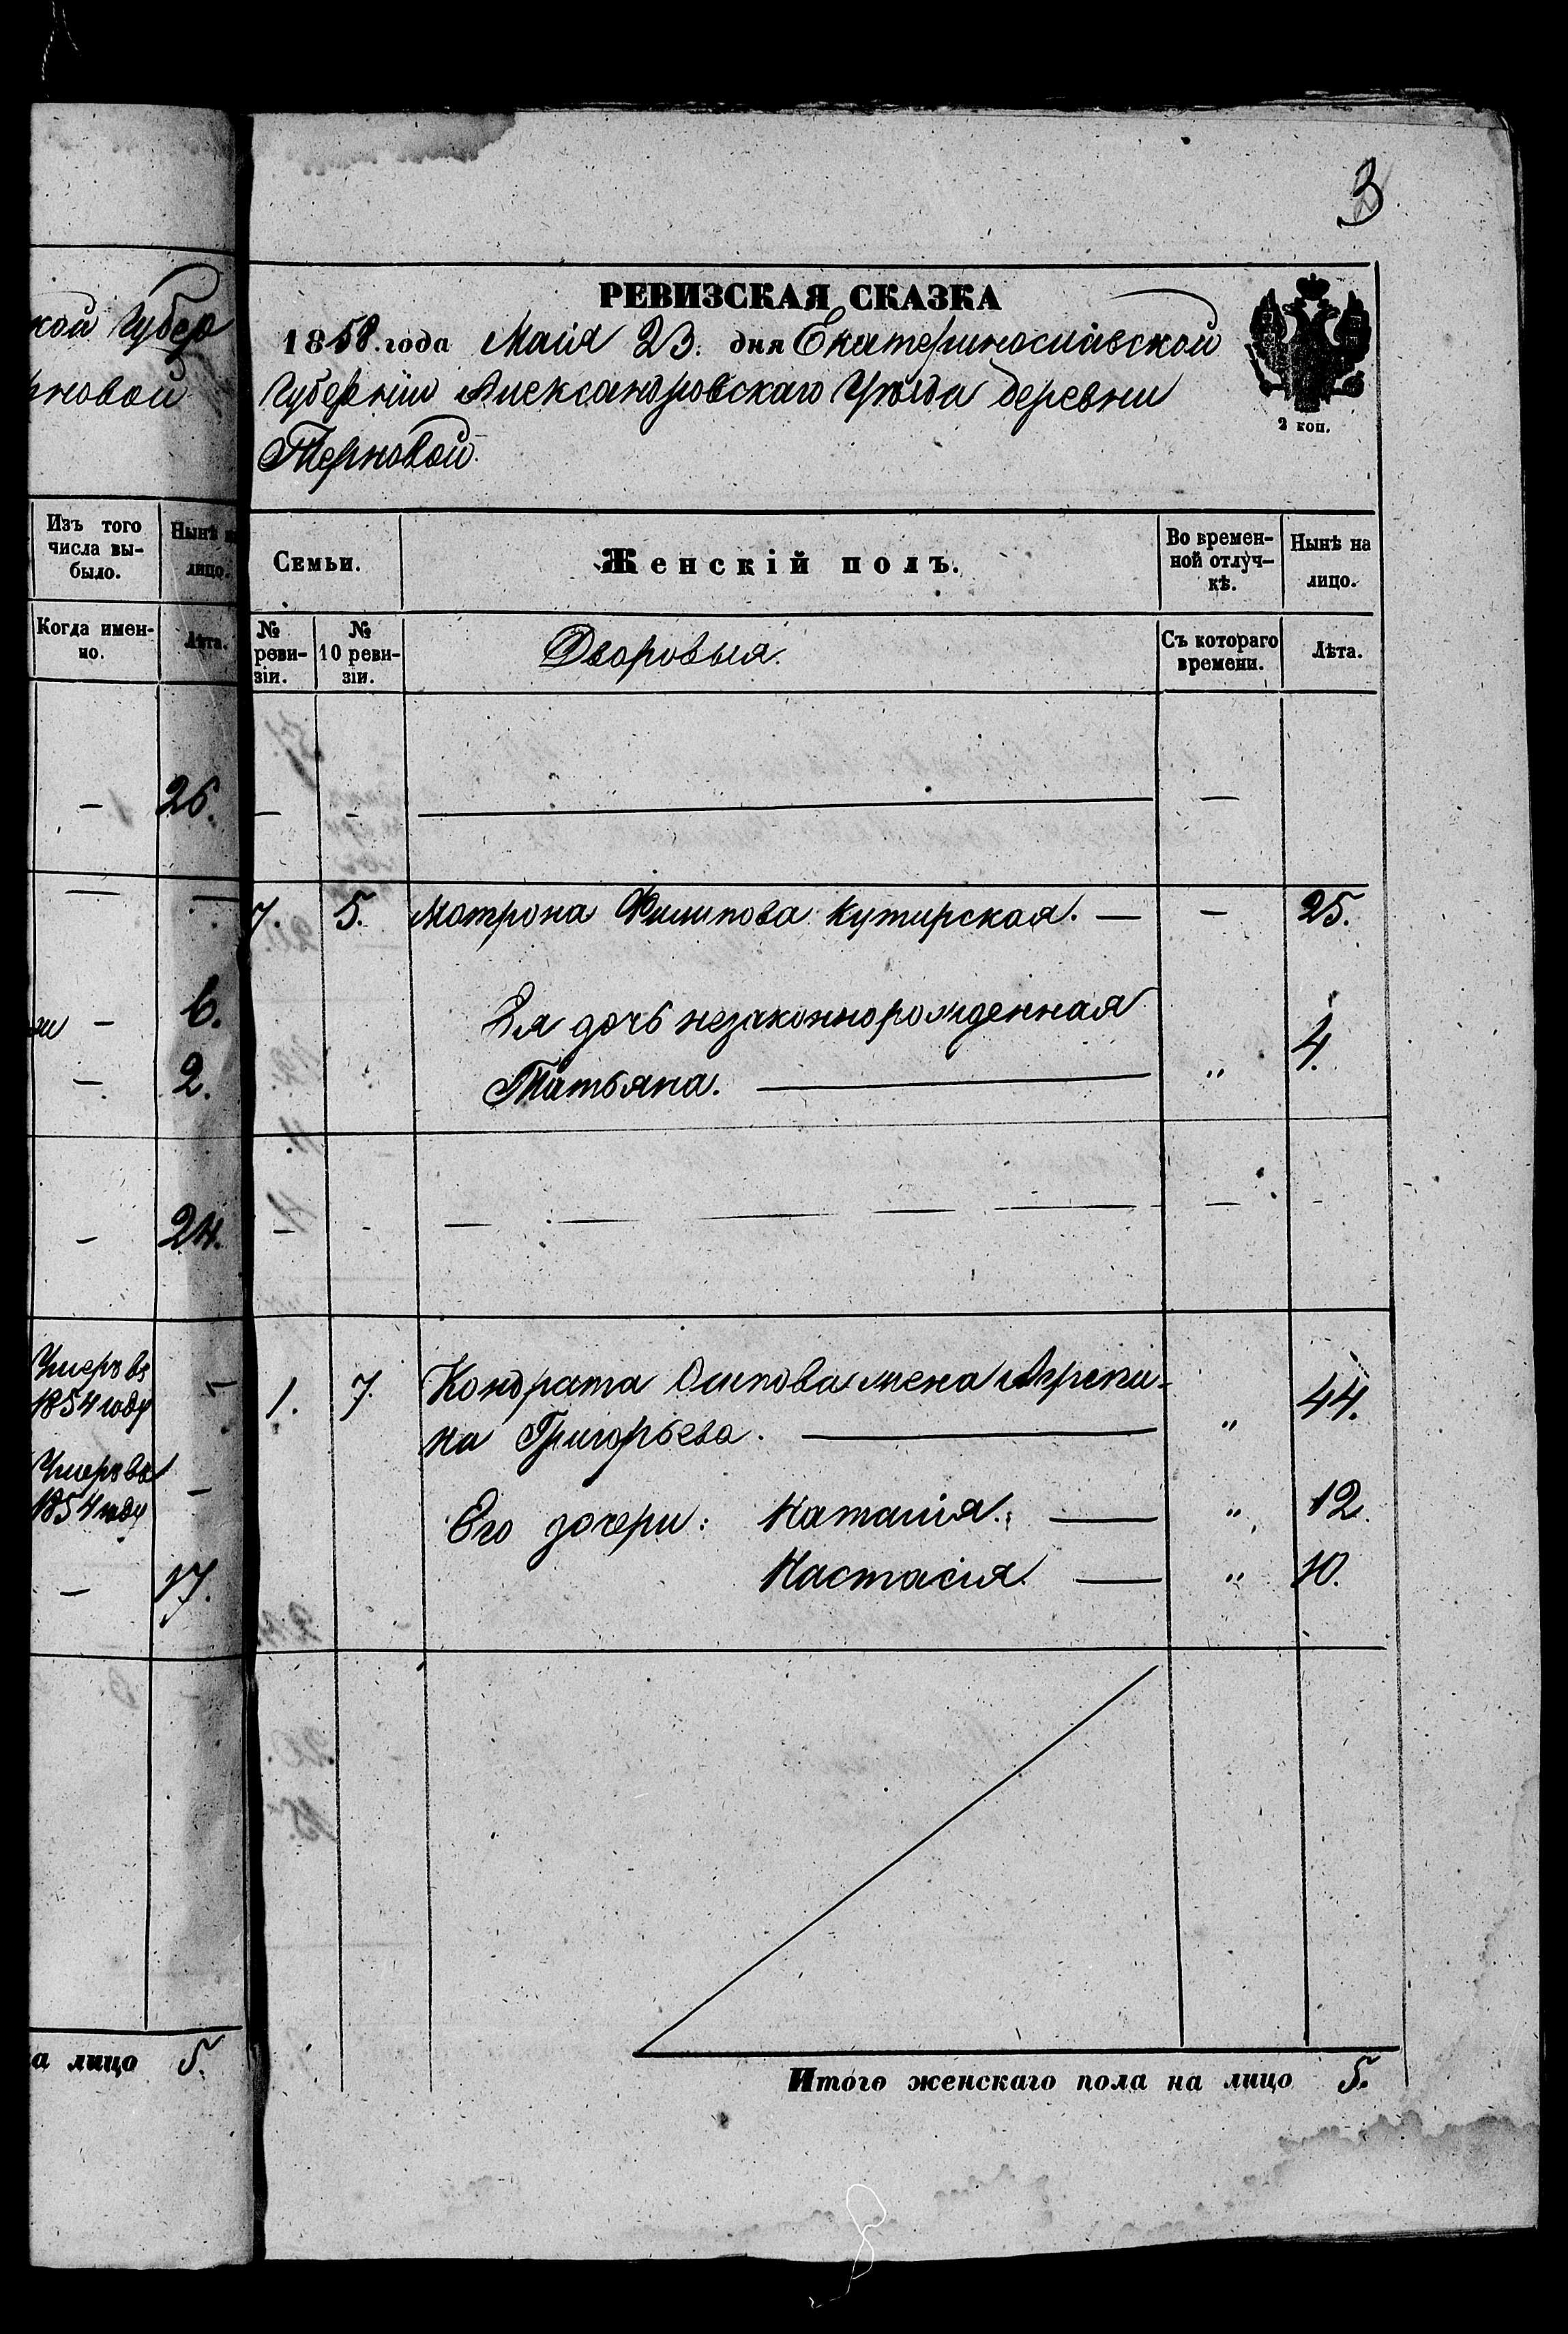 3
кой Губер
рновой
Изъ того
числа вы-
было.
Нынѣ
лицо.
Когда имен-
но.
Лѣта.
— 26.
— —
— 6.
— 2.
— 24.
Умеръ въ
1854 году —
Умеръ въ
1854 году —
— 17.
а лицо 5.
РЕВИЗСКАЯ СКАЗКА
1858. года Маія 23. дня Екатеринославской
Губерніи Александровскаго Уѣзда деревни
Терновой.
2 коп.
Семьи.
Женскій полъ.
Во времен-
ной отлуч-
кѣ.
Нынѣ на
лицо.
№
реви-
зіи.
№
10 реви-
зіи.
Дворовыя.
Съ котораго
времени.
Лѣта.
— — — —
7. 5. Мотрона Филипова Кутирская. — — 25.
Ея дочь незаконнорожденная
Татьяна. — „ 4.
— - — — — — — — -
1. 7. Кондрата Осипова жена Агрепи-
на Григорьева. — „ 44.
Его дочери: Наталія. — „ 12.
Настасія. — „ 10.
Итого женскаго пола на лицо 5.